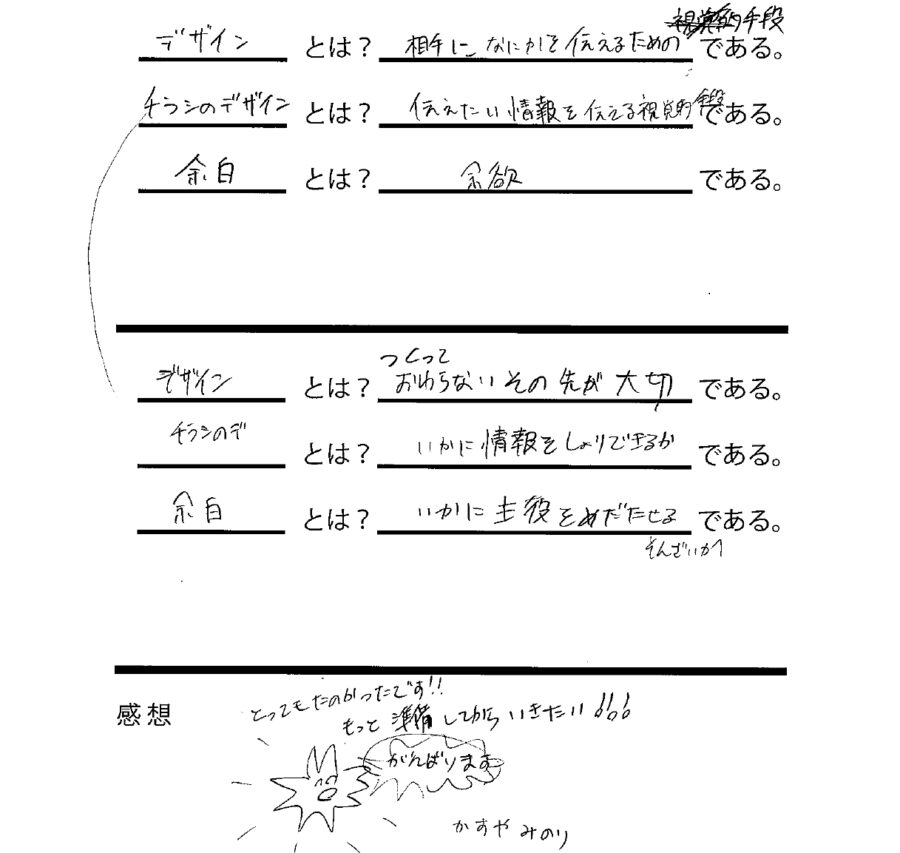 デザイン とは？ 相手になにかを伝えるための 視覚的手段 である。
チラシのデザイン とは？ 伝えたい情報を伝える視覚的手段 である。
余白 とは？ 余欲 である。
デザイン とは？ つくって おわらないその先が大切 である。
チラシのデ とは？ いかに情報をしょりできるか である。
余白 とは？ いかに主役をめだたせる である。
そんざいか
感想 とってもたのかったです!!
もっと準備してからいきたい!!!
がんばります
かすやみのり